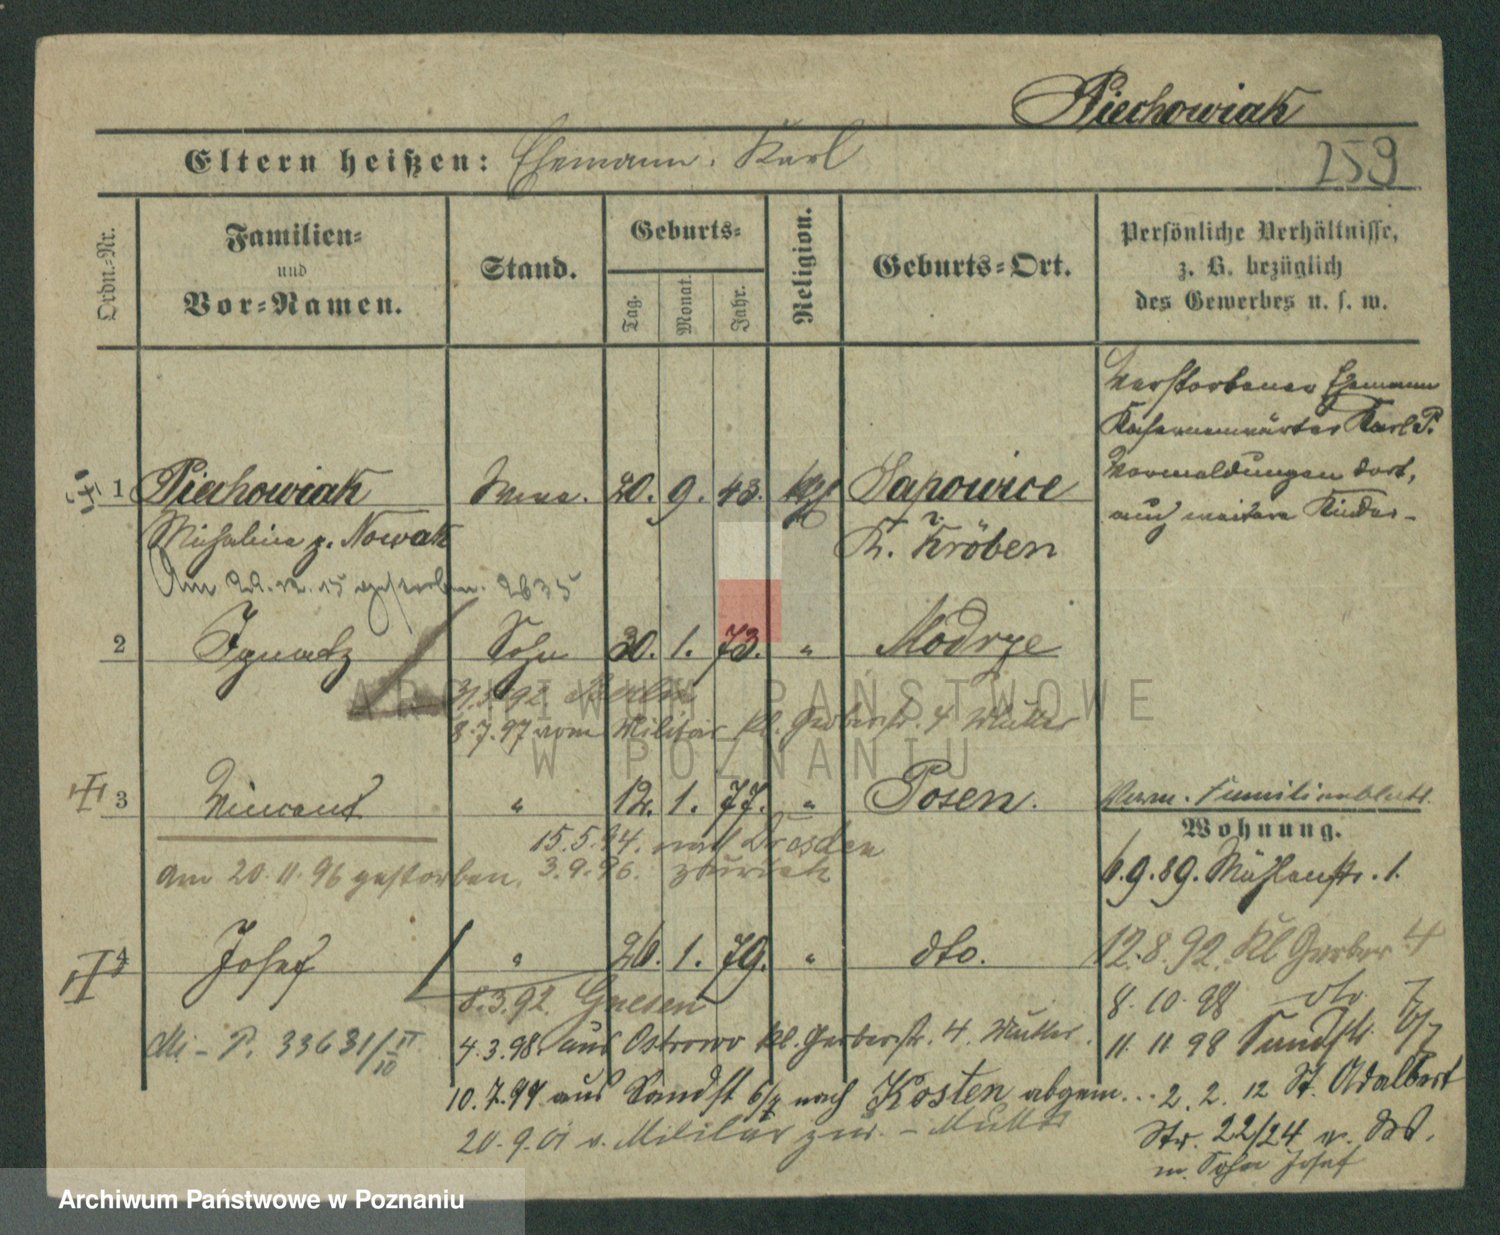 Piechowiak
Eltern heißen: Ehemann. Karl
259
Ordn.-Nr.
Familien- und Vor-Namen.
Stand.
Geburts-
Tag.
Monat.
Jahr.
Religion.
Geburts-Ort.
Persönliche Verhältnisse,
z. B. bezüglich
des Gewerbes u. s. w.
Verstorbener Ehemann
Kasernenwärter Karl P.
Vormeldungen dort,
auch weitere Kinder
1 Piechowiak Wwe. 20. 9. 43. kath Sapowice
Michalina g. Nowak K. Kröben
Am 22.12.15 gestorben. 2635
2 Ignatz Sohn 30. 1. 73. " Modrze
31.3.92. Berlin
8.7.97 vom Militär Kl. Gerberstr. 4 Mutter
3 Vincent " 12. 1. 77. " Posen.
Familienblatt.
Wohnung.
15.5.94. nach Dresden
am 20.11.96 gestorben. 3.9.96. zurück
6.9.89. Mühlenstr. 1.
4 Josef " 26. 1. 79. " dto.
12.8.92. Kl Gerber 4
8.3.92. Gnesen
8.10.98 dto 7
Mi - P. 33631/II
10
4.3.98. aus Ostrowo Kl. Gerberstr. 4. Mutter.
11.11.98 Sandstr. 6/7
10.7.99 aus Sandstr 6/7 nach Kosten abgem..
2.2.12 St. Adalbert
20.9.01 v. Militär zur. - Mutter
Str. 22/24
m. Sohn Josef
ARCHIWUM PAŃSTWOWE
W POZNANIU
Archiwum Państwowe w Poznaniu